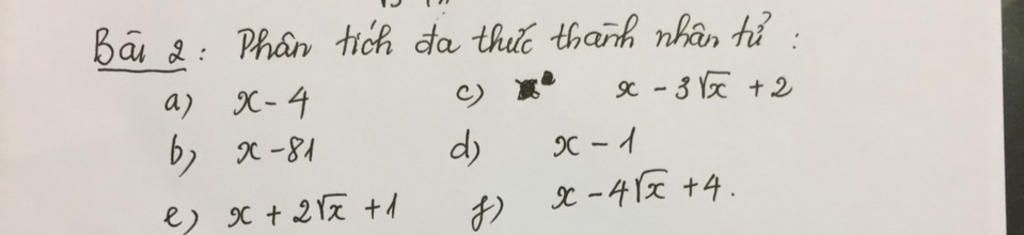 Bài 2 : Phân tích đa thức thành nhân tử :
a) x - 4 c) x - 3√x + 2
b) x - 81 d) x - 1
e) x + 2√x + 1 f) x - 4√x + 4.